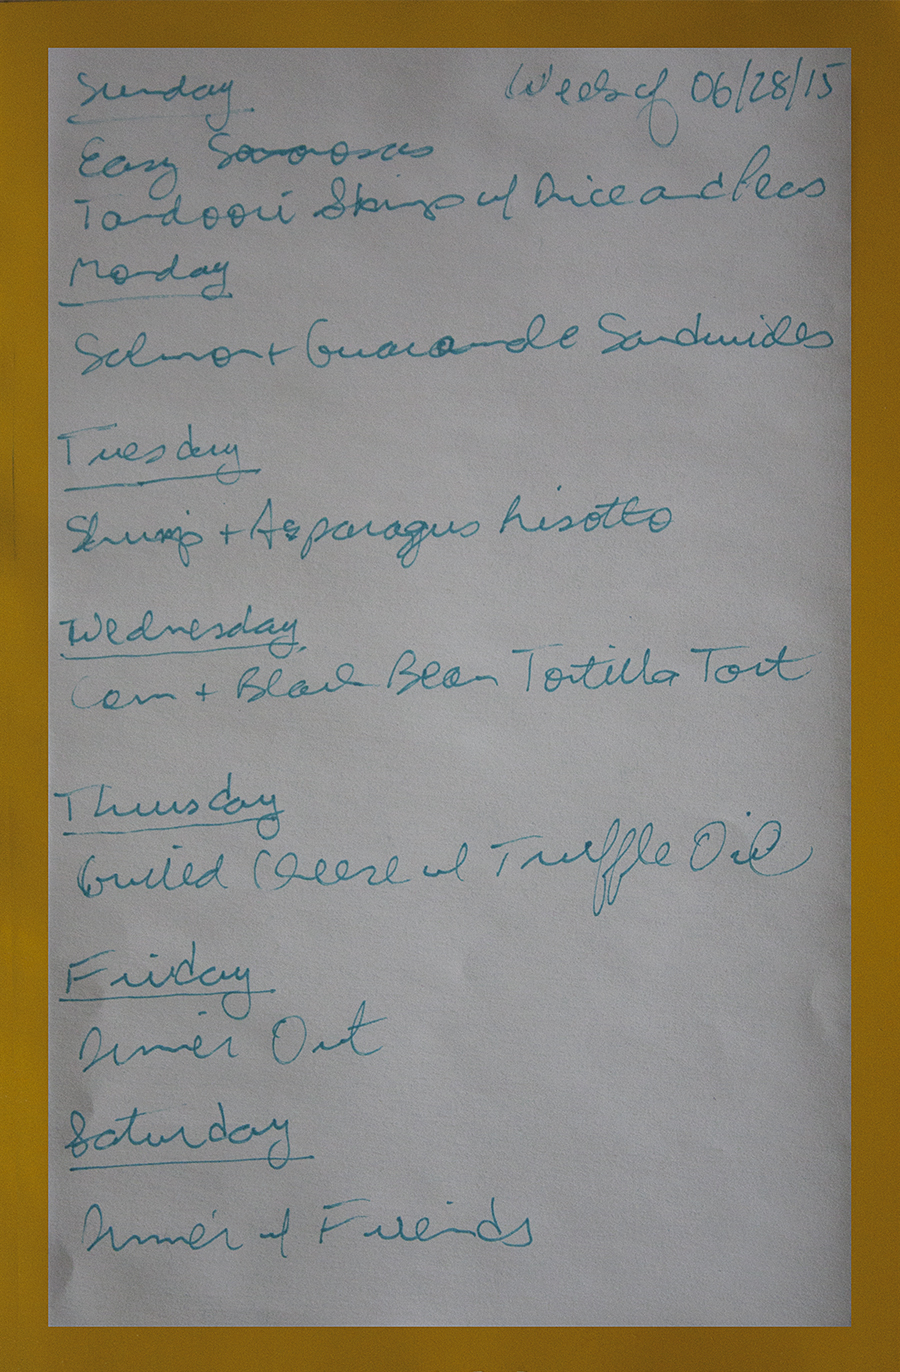 Sunday
Week of 06/28/15
Easy Samosas
Tandoori Shrimp w/ Rice and Peas
Monday
Salmon + Guacamole Sandwiches
Tuesday
Shrimp + Asparagus Risotto
Wednesday
Corn + Black Bean Tortilla Tart
Thursday
Grilled Cheese w/ Truffle Oil
Friday
Dinner Out
Saturday
Dinner w/ Friends